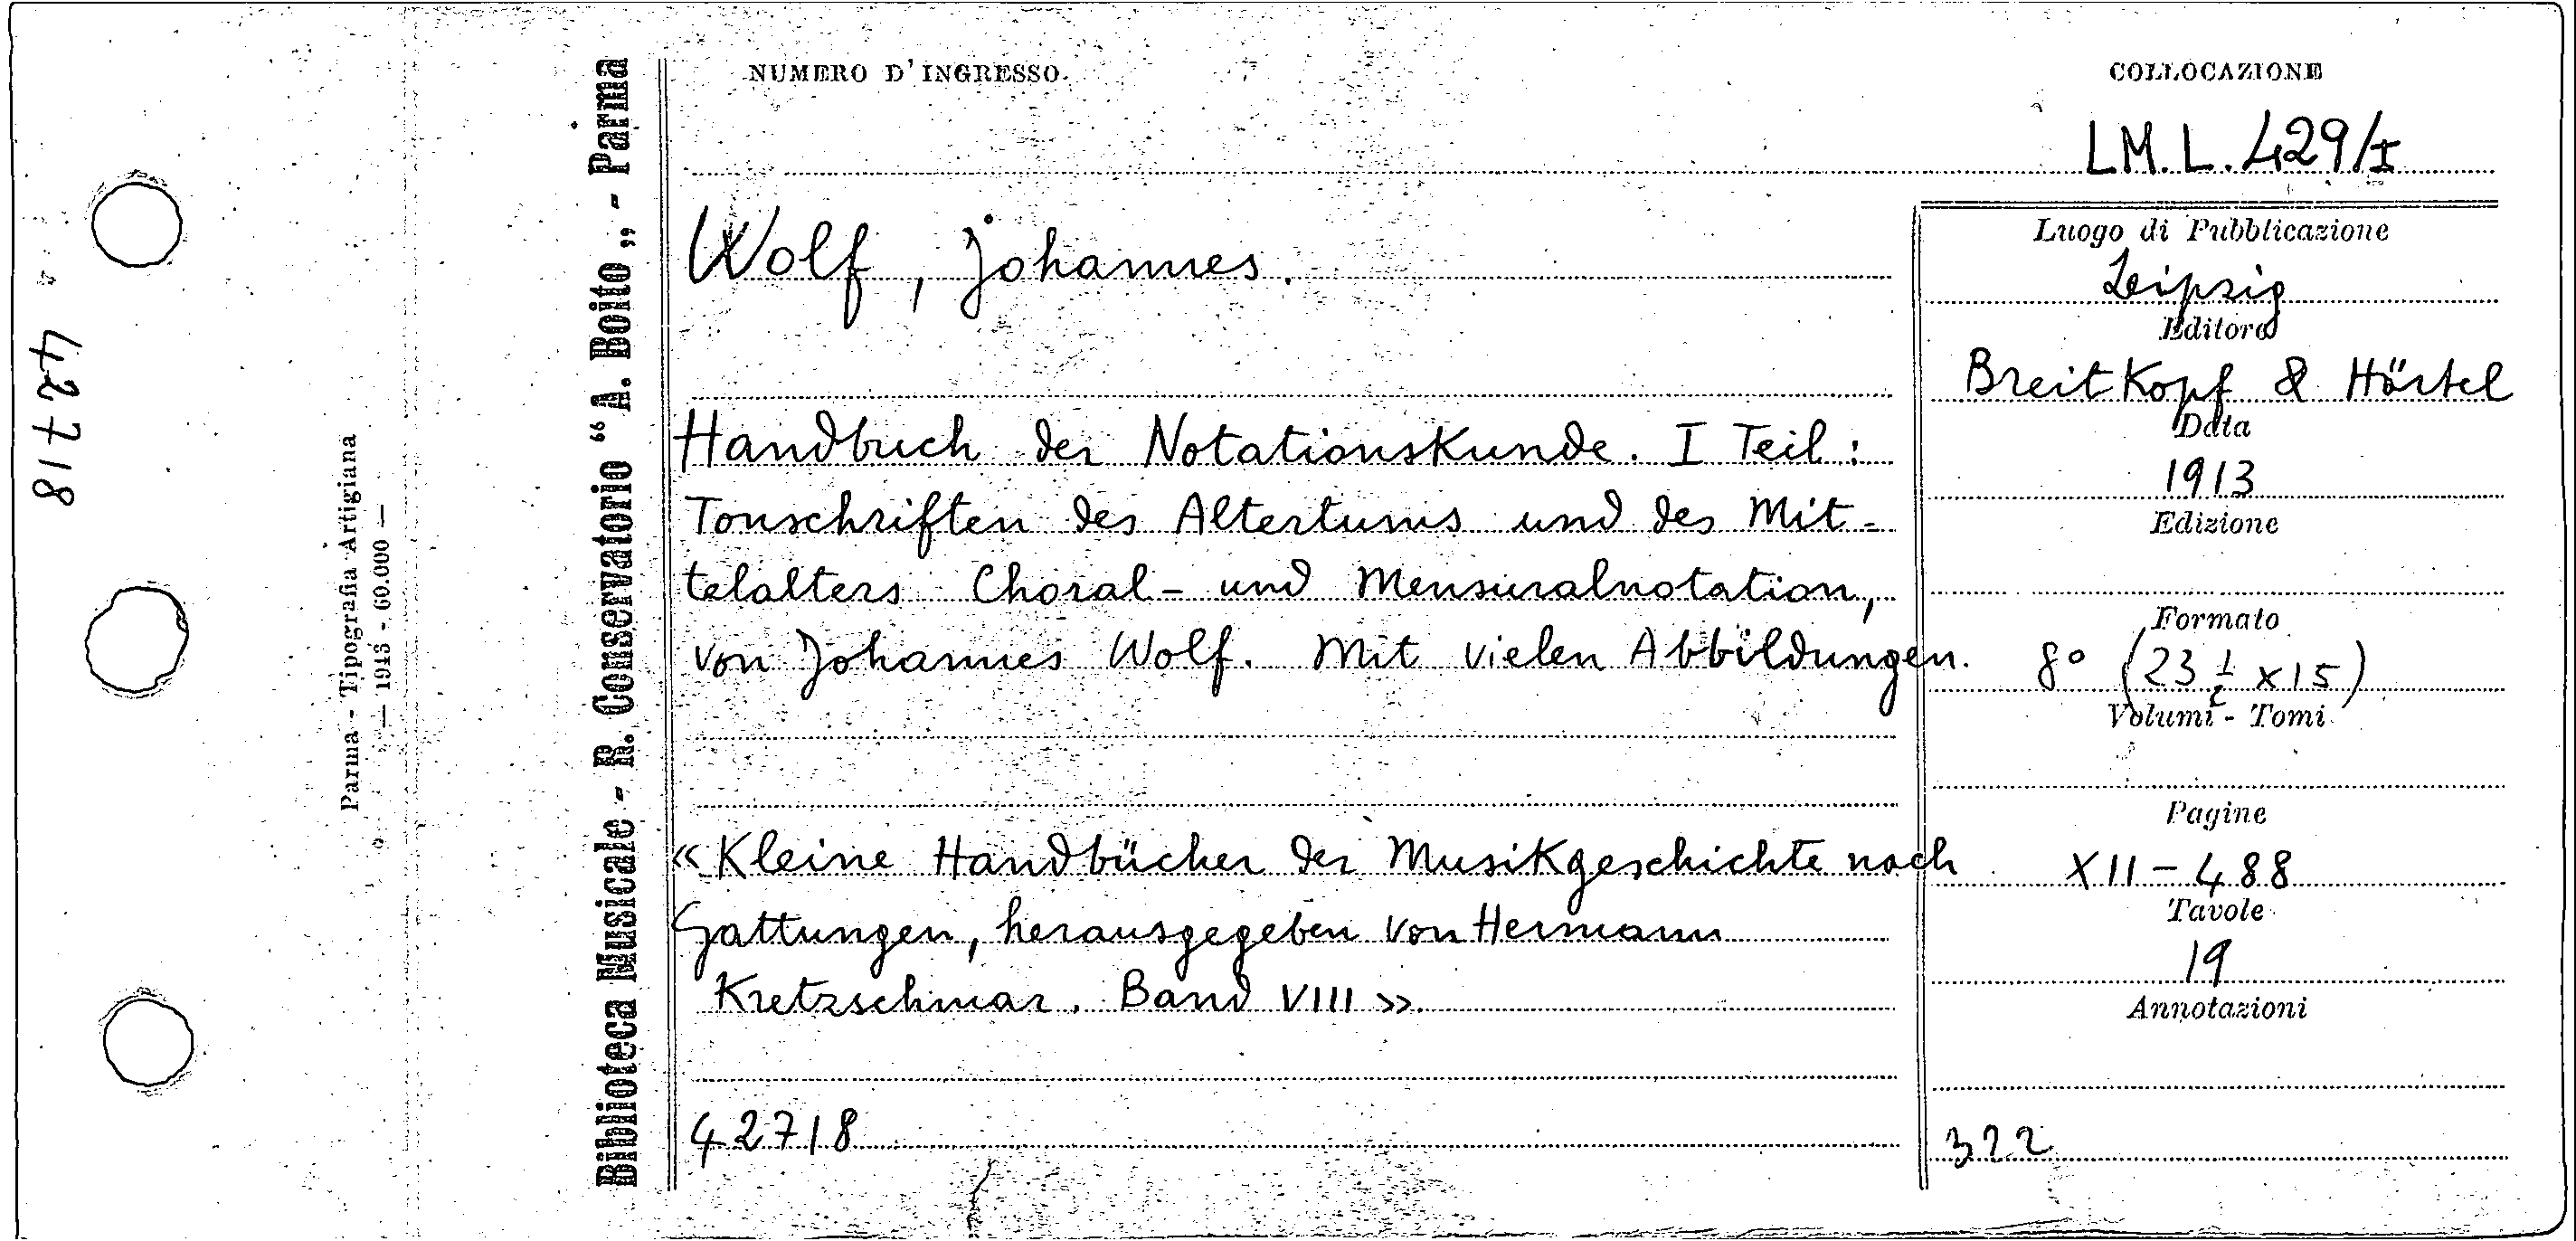 42718
Parma - Tipografia Artigiana
— 1943 - 60.000 —
Biblioteca Musicale - R. Conservatorio “A. Boito„ - Parma
NUMERO D'INGRESSO
COLLOCAZIONE
LM.L.429/I
Wolf, Johannes.
Handbuch der Notationskunde. I Teil:
Tonschriften des Altertums und des Mit-
telalters Choral- und Mensuralnotation,
von Johannes Wolf. Mit vielen Abbildungen.
«Kleine Handbücher der Musikgeschichte nach
Gattungen, herausgegeben von Hermann
Kretzschmar. Band VIII».
42718
Luogo di Pubblicazione
Leipzig
Editore
Breitkopf & Härtel
Data
1913
Edizione
Formato
8° (23 ½ x 15)
Volumi - Tomi
Pagine
XII - 488
Tavole
19
Annotazioni
322